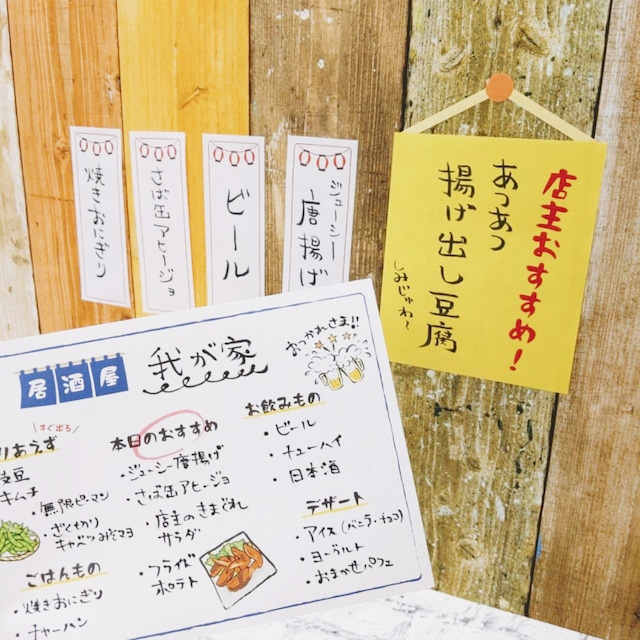 焼きおにぎり
さば缶アヒージョ
ビール
ジューシー
唐揚げ
店主おすすめ！
あつあつ
揚げ出し豆腐
しみじゅわ〜
居酒屋
我が家
おつかれさま!!
すぐ出る
りあえず
枝豆
キムチ
・無限ピーマン
・ざくぎり
キャベツみそマヨ
ごはんもの
・焼きおにぎり
・チャーハン
本日のおすすめ
・ジューシー唐揚げ
・さば缶アヒージョ
・店主のきまぐれ
サラダ
・フライド
ポテト
お飲みもの
・ビール
・チューハイ
・日本酒
デザート
・アイス(バニラ・チョコ)
・ヨーグルト
・おまかせパフェ